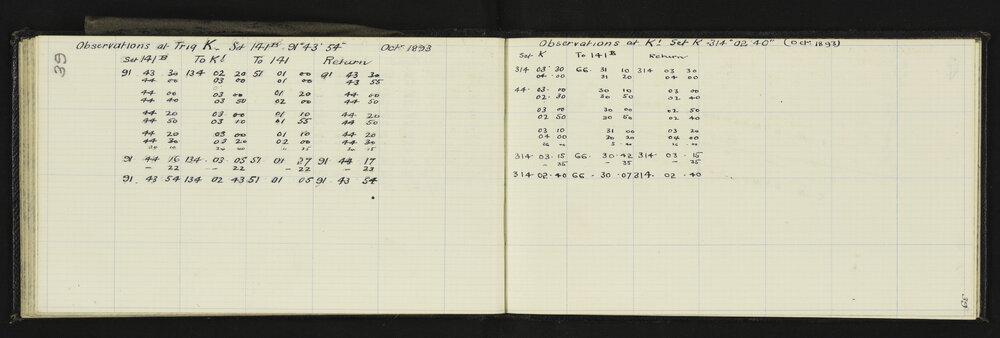 39
Observations at Trig K. Set 141ᴮ. 91° 43' 54" Octʳ 1893
Set 141ᴮ To K¹ To 141 Return
91 43 30 134 02 20 51 01 00 91 43 30
44 00 03 00 01 00 43 55
44 00 03 00 01 20 44 00
44 40 03 50 02 00 44 50
44 20 03 00 01 10 44 20
44 50 03 10 01 55 44 50
44 20 03 00 01 10 44 20
44 30 03 20 02 00 44 30
91 44 16 134 03 05 51 01 27 91 44 17
– 22 – 22 – 22 – 23
91 43 54 134 02 43 51 01 05 91 43 54
Observations at K¹ Set K 314° 02' 40" (Octʳ 1893)
Set K To 141ᴮ Return
314 03 30 66 31 10 314 03 30
04 00 31 20 04 00
44 03 00 30 10 03 00
02 30 30 50 02 40
03 00 30 00 02 50
02 50 30 50 02 40
03 10 31 00 03 20
04 00 30 20 04 00
314 03 15 66 30 42 314 03 15
– 35 – 35 – 35
314 02 40 66 30 07 314 02 40
39